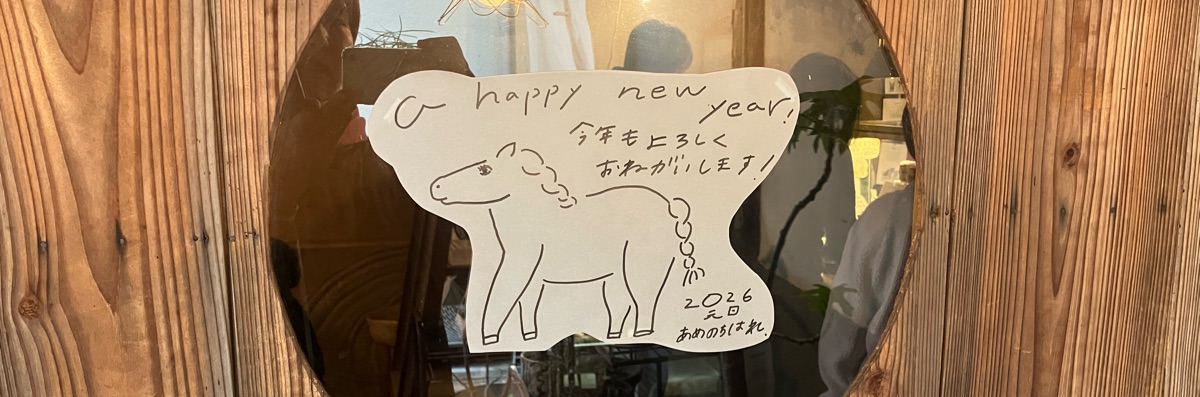 a happy new year!
今年もよろしく
おねがいします!
2026
元日
あめのちはれ.